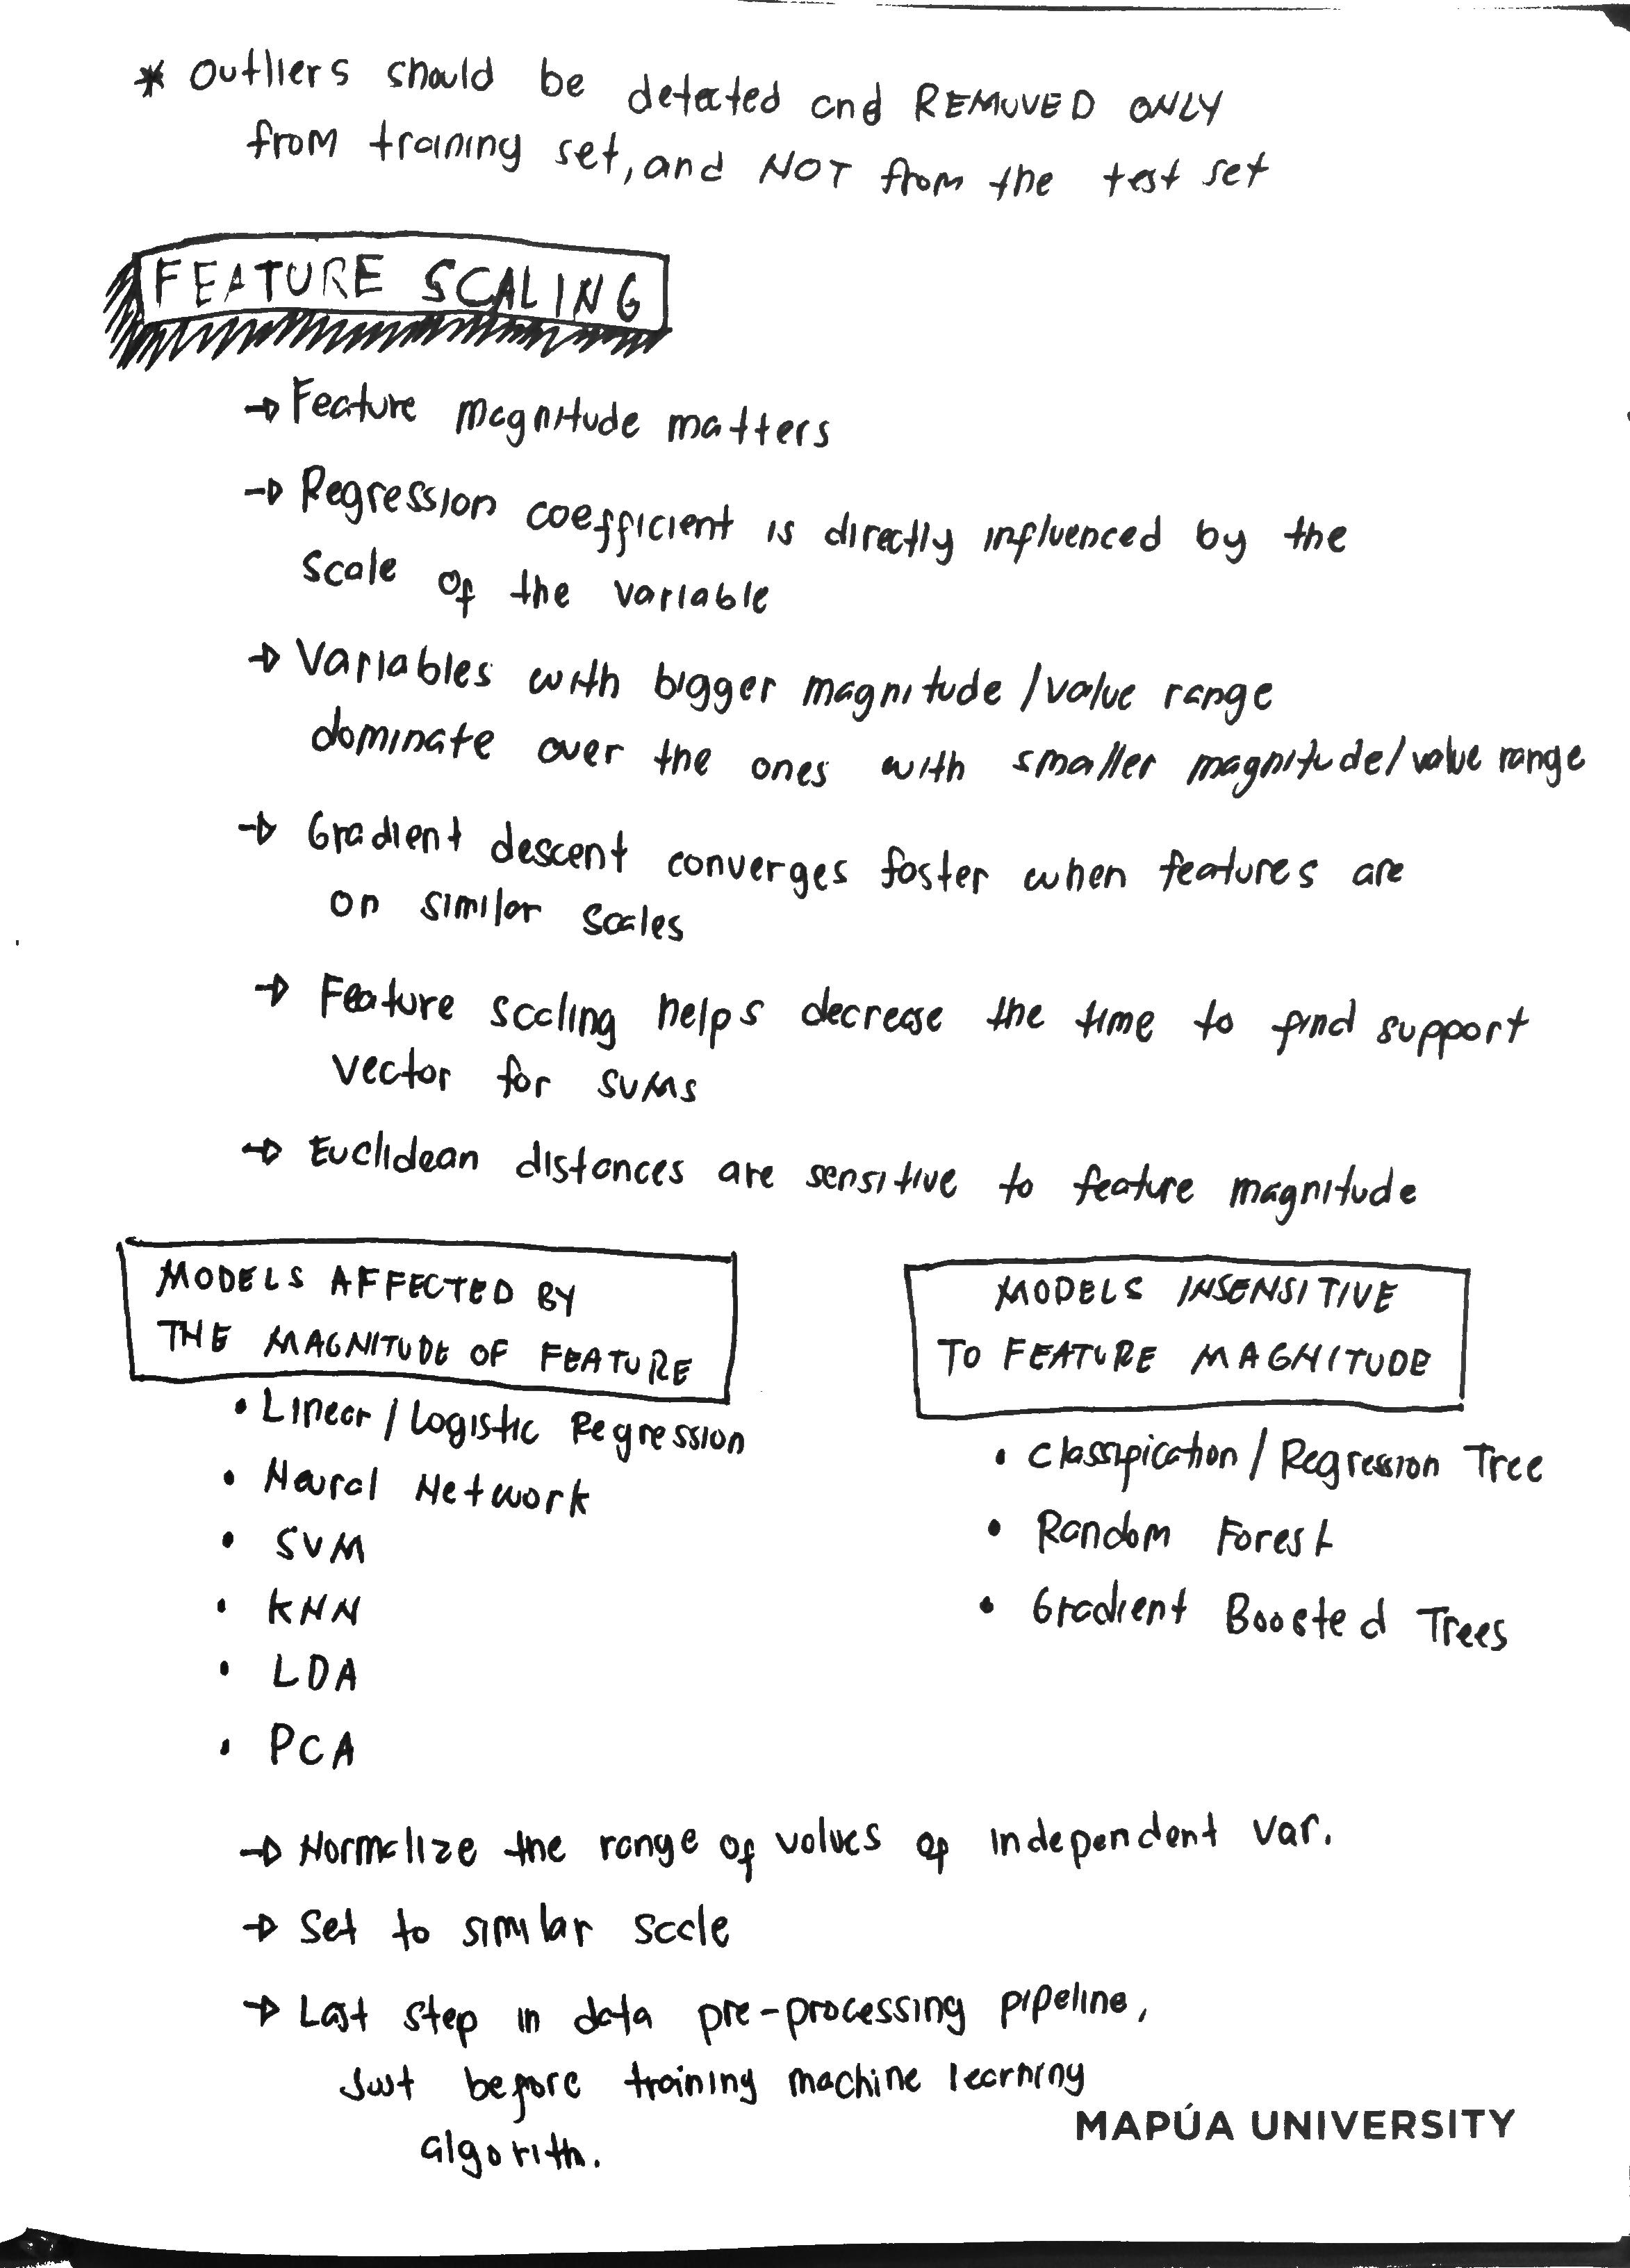 * Outliers should be detected and REMOVED ONLY
from training set, and NOT from the test set
FEATURE SCALING
→ Feature magnitude matters
→ Regression coefficient is directly influenced by the
scale of the variable
→ Variables with bigger magnitude/value range
dominate over the ones with smaller magnitude/value range
→ Gradient descent converges faster when features are
on similar scales
→ Feature scaling helps decrease the time to find support
vector for SVMs
→ Euclidean distances are sensitive to feature magnitude
MODELS AFFECTED BY
THE MAGNITUDE OF FEATURE
• Linear/Logistic Regression
• Neural Network
• SVM
• KNN
• LDA
• PCA
MODELS INSENSITIVE
TO FEATURE MAGNITUDE
• Classification/Regression Tree
• Random Forest
• Gradient Boosted Trees
→ Normalize the range of values of independent var.
→ Set to similar scale
→ Last step in data pre-processing pipeline,
Just before training machine learning
algorith.
MAPÚA UNIVERSITY